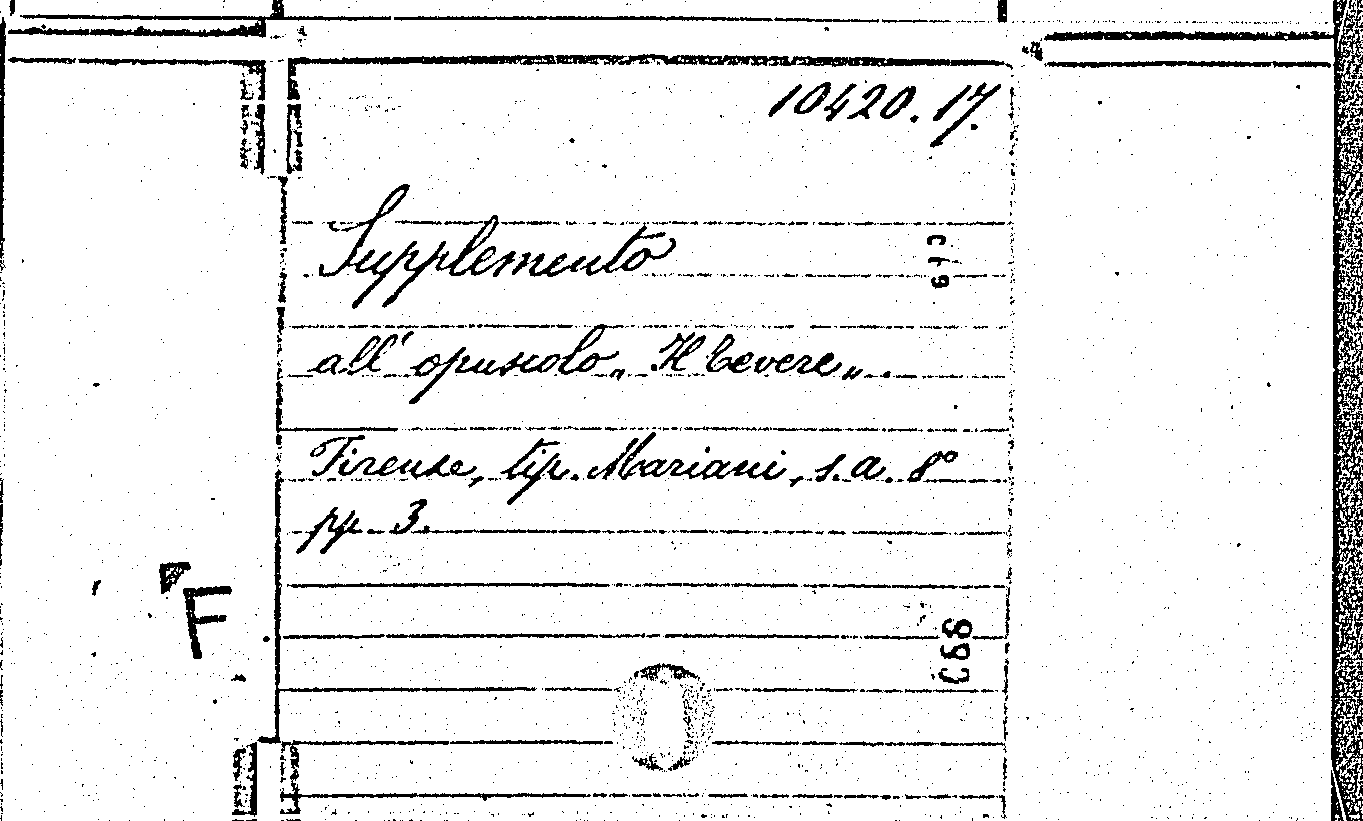 10420.17.
Supplemento
all' opuscolo „Il Tevere„.
Firenze, tip. Mariani, s.a. 8°
pp. 3.
F